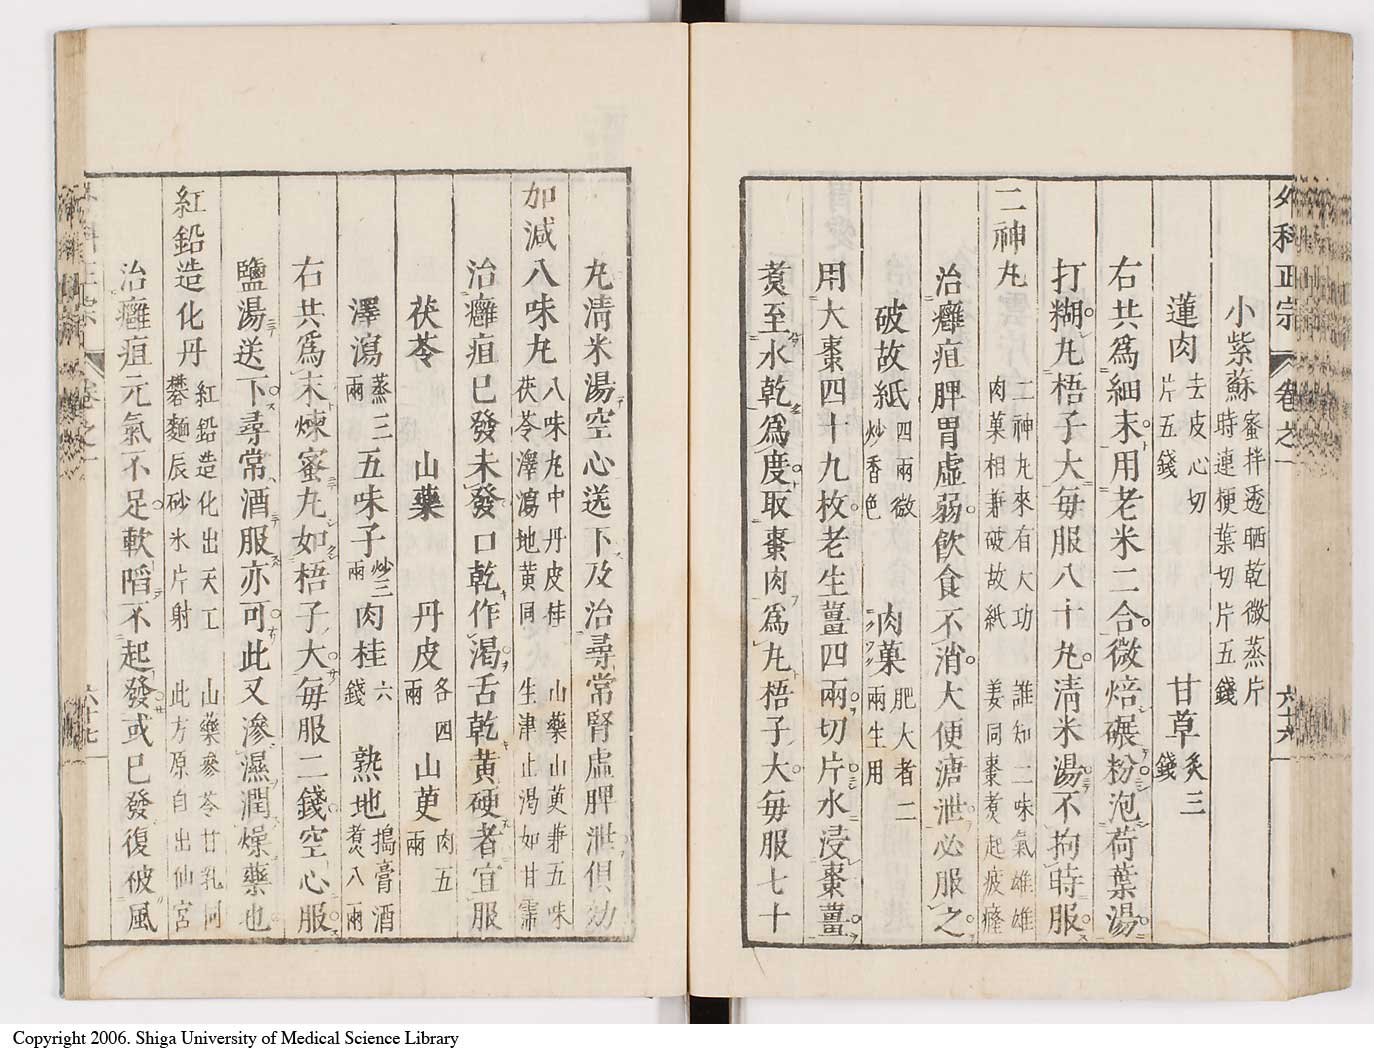 外科正宗 卷之一 六十六
小紫蘇 蜜拌透晒乾微蒸片時連梗葉切片五錢
蓮肉 去皮心切片五錢 甘草 炙三錢
右共爲細末用老米二合微焙碾粉泡荷葉湯
打糊丸梧子大毎服八十丸清米湯不拘時服
二神丸 二神丸來有大功 誰知二味氣雄雄 肉菓相兼破故紙 姜同棗煑起疲癃
治癰疽脾胃虛弱飮食不消大便溏泄必服之
破故紙 四兩微炒香色 肉菓 肥大者二兩生用
用大棗四十九枚老生薑四兩切片水浸棗薑
煑至水乾爲度取棗肉爲丸梧子大毎服七十
丸清米湯空心送下及治尋常腎虛脾泄俱効
加減八味丸 八味丸中丹皮桂 山藥山萸兼五味 茯苓澤瀉地黄同 生津止渴如甘霈
治癰疽已發未發口乾作渴舌乾黄硬者宜服
茯苓 山藥 丹皮 各四兩 山萸 肉五兩
澤瀉 蒸三兩 五味子 炒三兩 肉桂 六錢 熟地 搗膏酒煑八兩
右共爲末煉蜜丸如梧子大毎服二錢空心服
鹽湯送下尋常酒服亦可此又滲濕潤燥藥也
紅鉛造化丹 紅鉛造化出天工 山藥參苓甘乳同 礬麵辰砂氷片射 此方原自出仙宮
治癰疽元氣不足軟䧟不起發或已發復被風
六十七
Copyright 2006. Shiga University of Medical Science Library